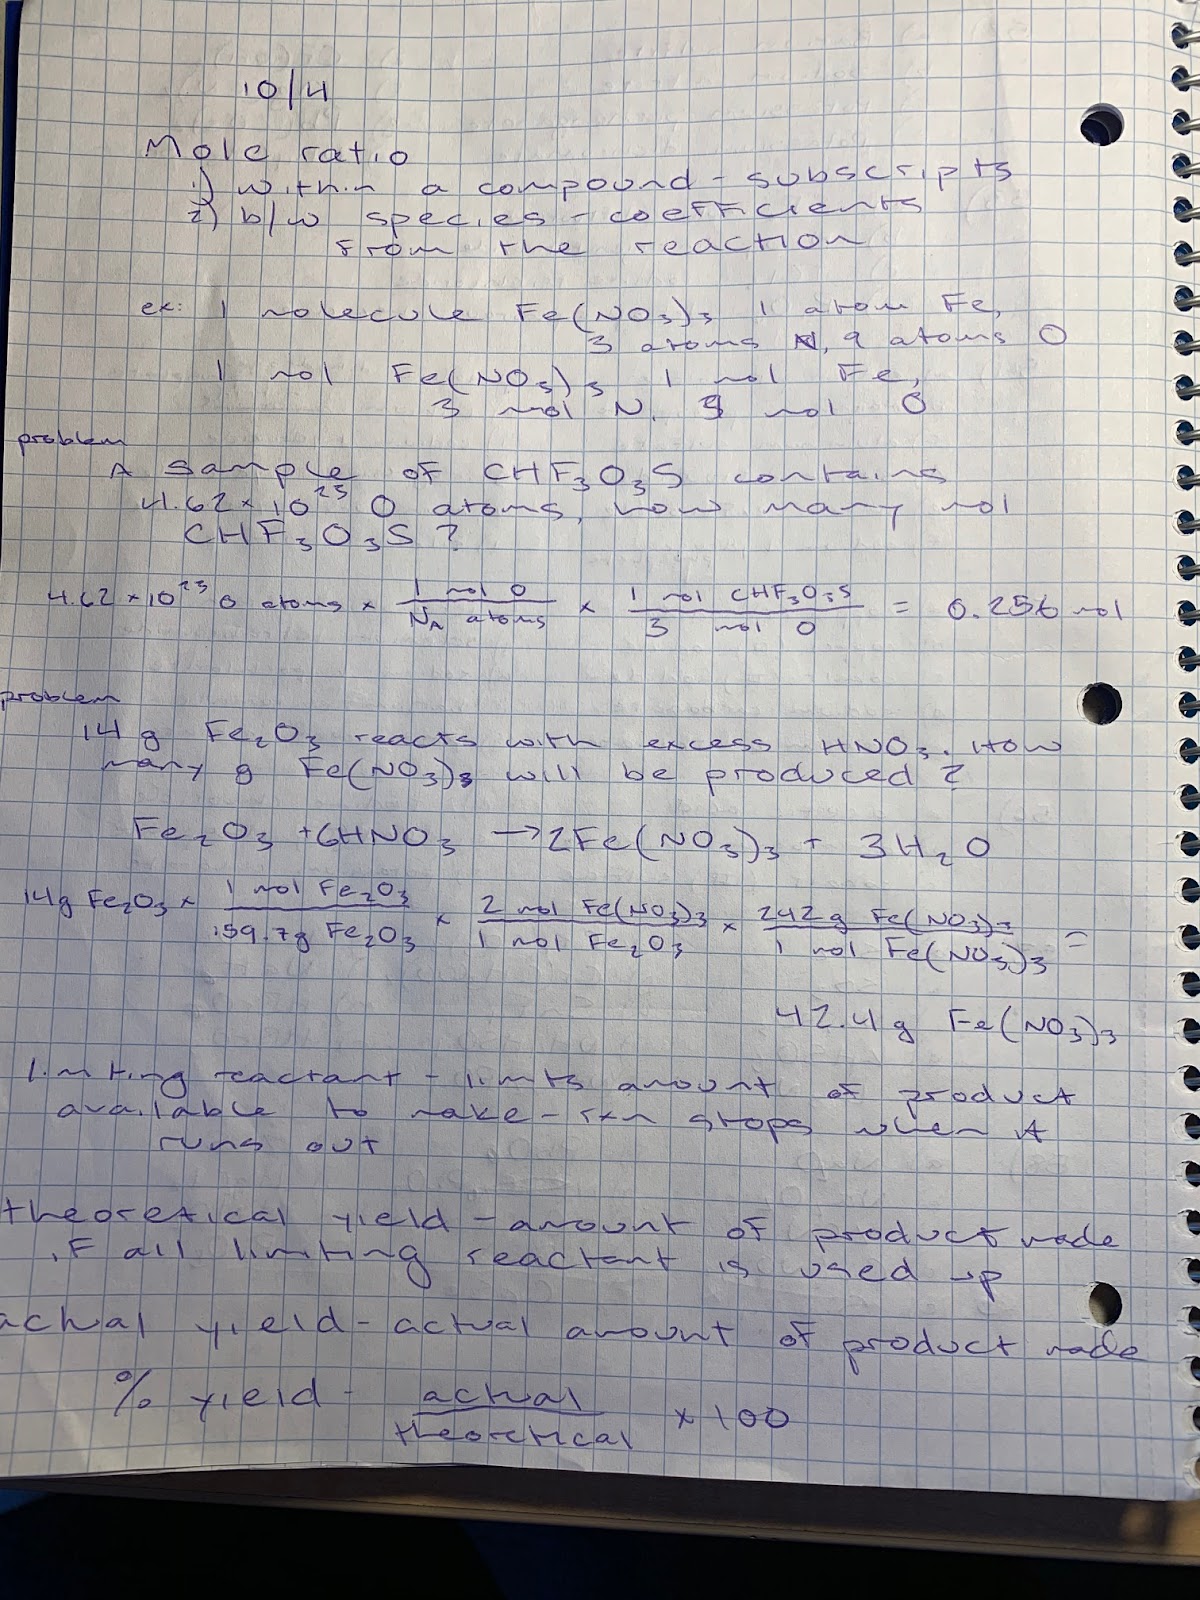 10/4
Mole ratio
1) within a compound - subscripts
2) b/w species - coefficients
from the reaction
ex: 1 molecule Fe(NO₃)₃ 1 atom Fe,
3 atoms N, 9 atoms O
1 mol Fe(NO₃)₃ 1 mol Fe,
3 mol N, 9 mol O
problem
A sample of CHF₃O₃S contains
4.62 × 10²³ O atoms, how many mol
CHF₃O₃S?
4.62 × 10²³ O atoms × 1 mol O / N_A atoms × 1 mol CHF₃O₃S / 3 mol O = 0.256 mol
problem
14 g Fe₂O₃ reacts with excess HNO₃. How
many g Fe(NO₃)₃ will be produced?
Fe₂O₃ + 6HNO₃ → 2Fe(NO₃)₃ + 3H₂O
14g Fe₂O₃ × 1 mol Fe₂O₃ / 159.7g Fe₂O₃ × 2 mol Fe(NO₃)₃ / 1 mol Fe₂O₃ × 242 g Fe(NO₃)₃ / 1 mol Fe(NO₃)₃ =
42.4g Fe(NO₃)₃
limiting reactant - limits amount of product
available to make - rxn stops when it
runs out
theoretical yield - amount of product made
if all limiting reactant is used up
actual yield - actual amount of product made
% yield - actual / theoretical × 100